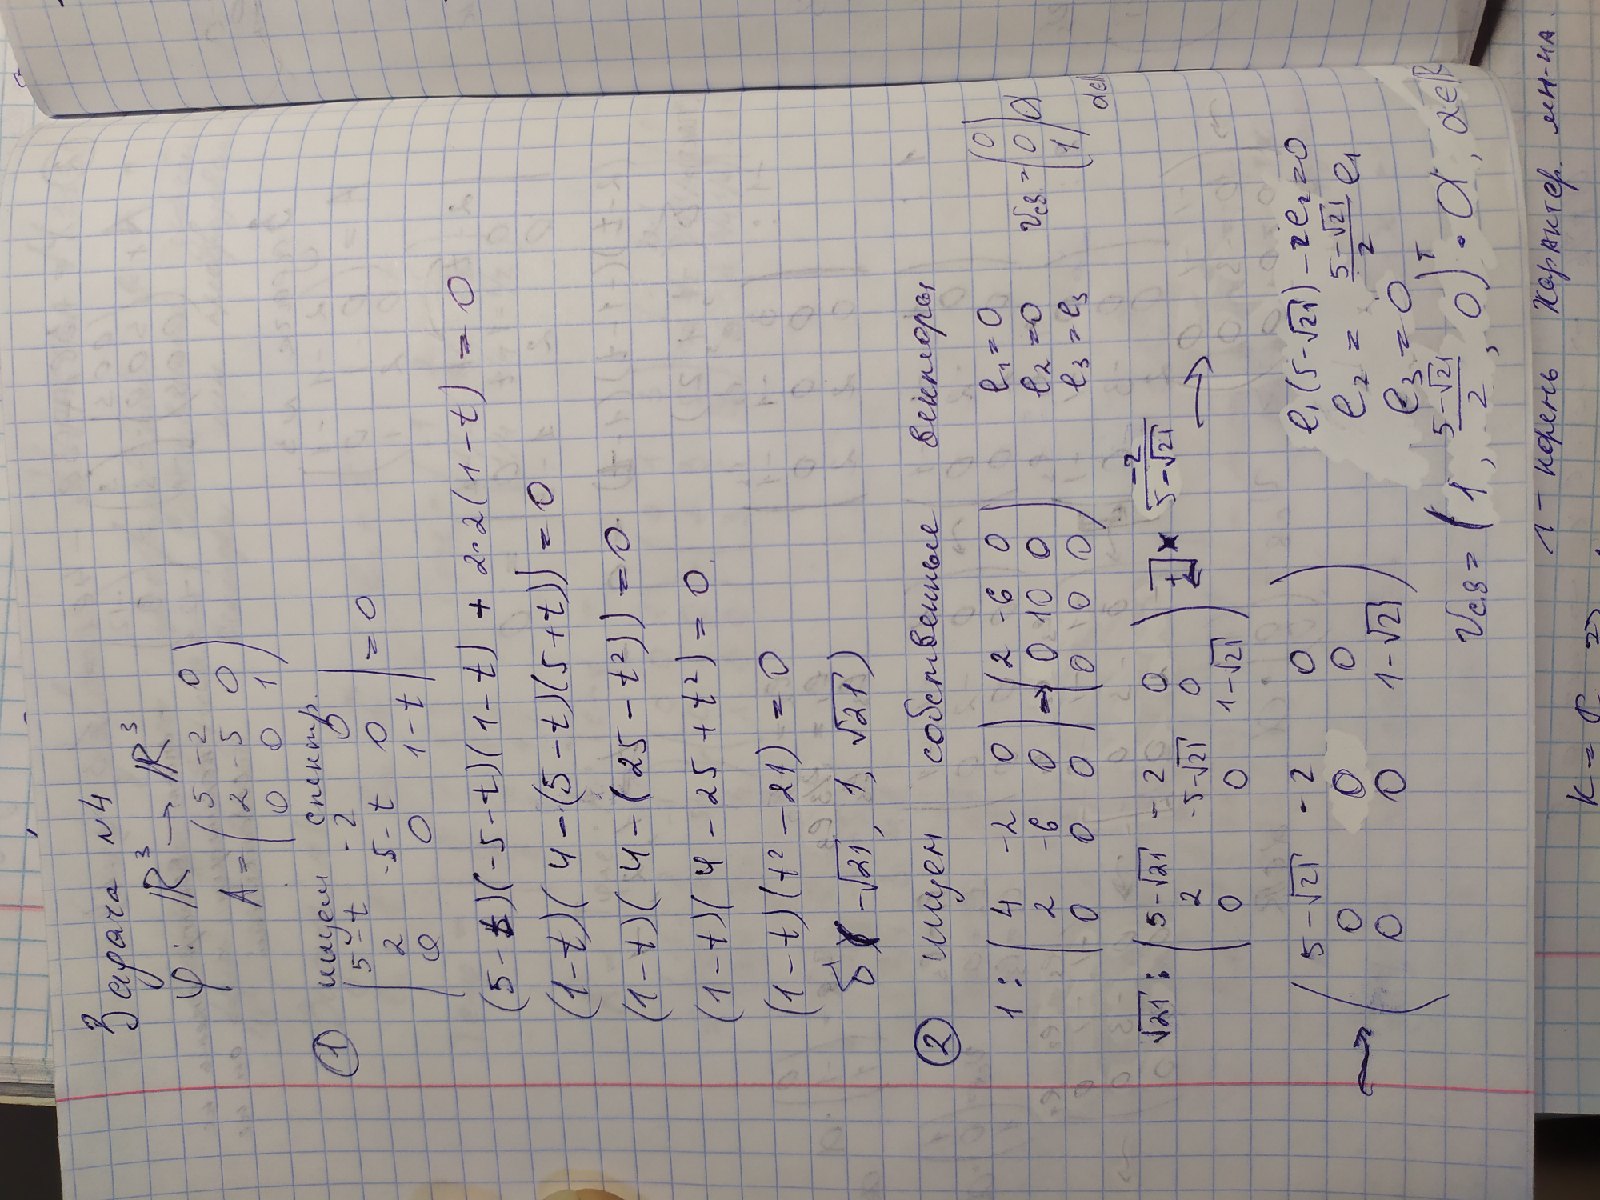 Задача №4
φ: ℝ³ → ℝ³
A = (5 -2 0
2 -5 0
0 0 1)
① ищем спектр.
|5-t -2 0|
|2 -5-t 0| = 0
|0 0 1-t|
(5-t)(-5-t)(1-t) + 2·2(1-t) = 0
(1-t)(4-(5-t)(5+t)) = 0
(1-t)(4-(25-t²)) = 0
(1-t)(4-25+t²) = 0.
(1-t)(t²-21) = 0
δ(-√21, 1, √21)
② ищем собственные векторы
1: (4 -2 0
2 -6 0
0 0 0) → (2 -6 0
0 10 0
0 0 0)
e₁ = 0
e₂ = 0
e₃ = e₃
v с.в = (0
0
1) α
α∈ℝ
√21: (5-√21 -2 0
2 -5-√21 0
0 0 1-√21) + × -2/(5-√21) →
→ (5-√21 -2 0
0 0 0
0 0 1-√21)
e₁(5-√21) - 2e₂ = 0
e₂ = (5-√21)/2 e₁
e₃ = 0
v с.в = (1, (5-√21)/2, 0)ᵀ · α, α∈ℝ
1 - корень характер. мн-на.